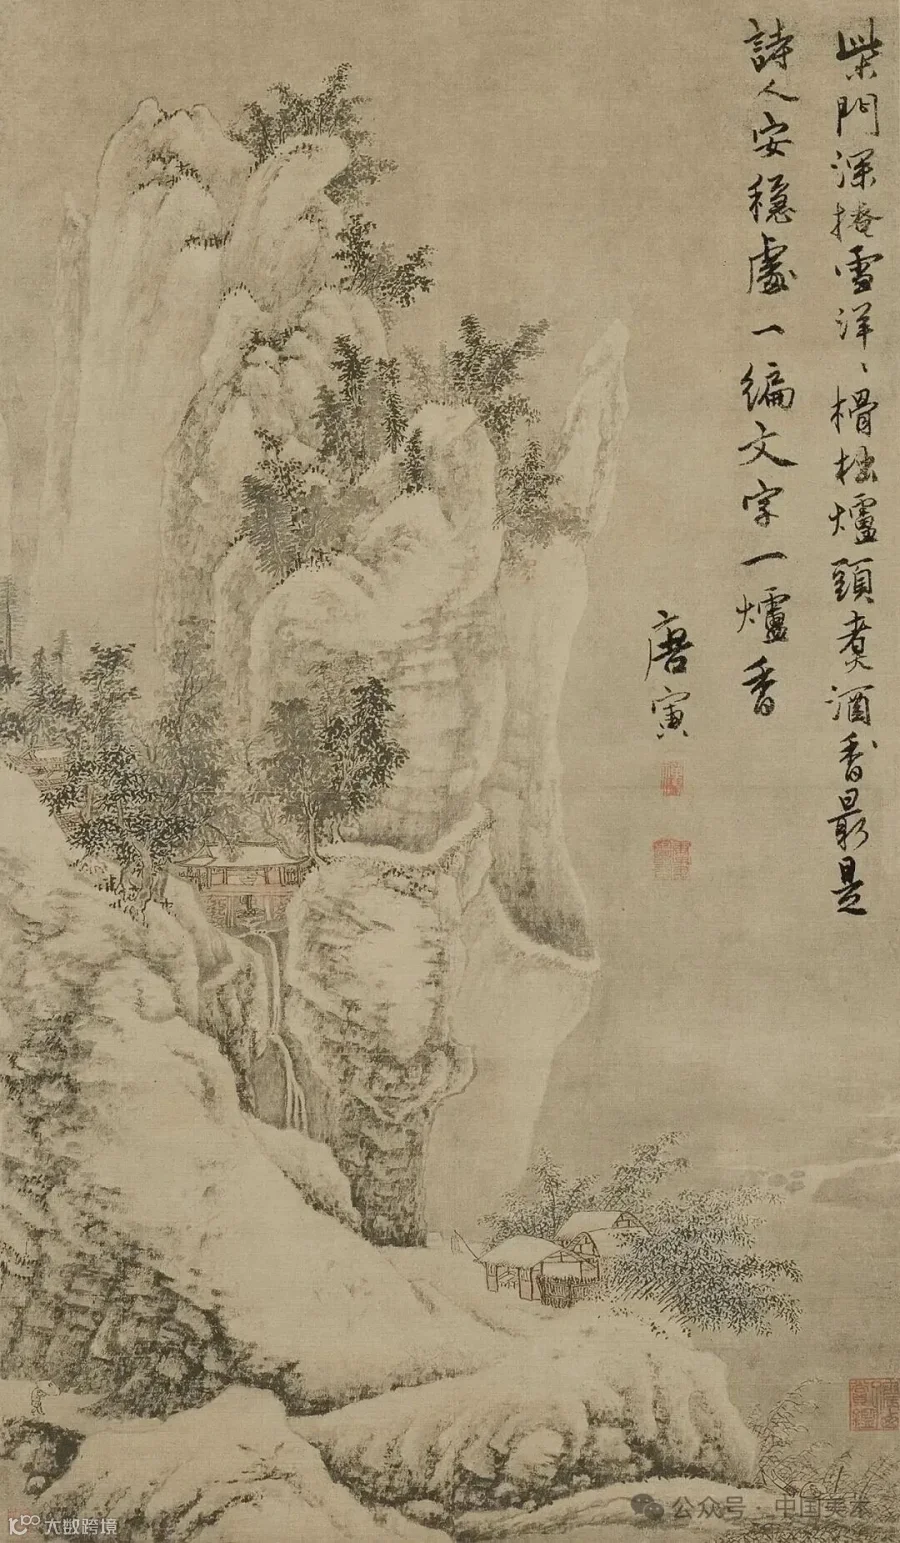 柴門深掩雪洋〻榾柮爐頭煑酒香最是
詩人安穏處一編文字一爐香
唐寅
公众号·中国美术
大数跨境